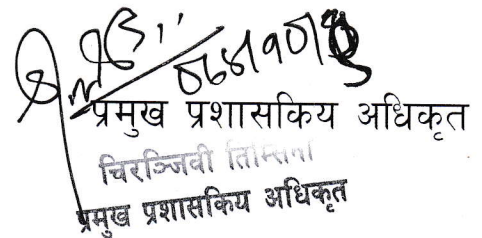 प्रमुख प्रशासकिय अधिकृत
चिरञ्जिवी तिम्सिना
प्रमुख प्रशासकिय अधिकृत